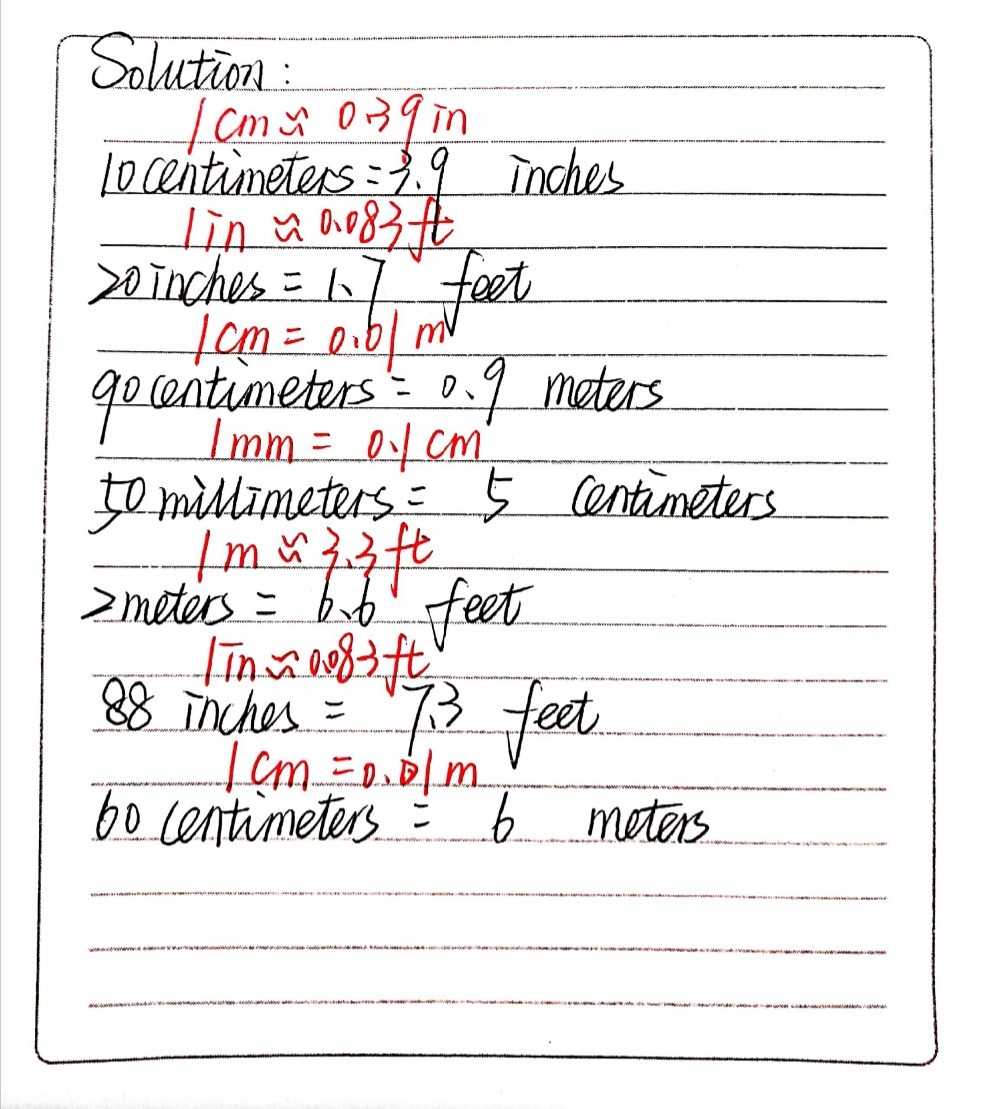 Solution:
1cm ≈ 0.39in
10centimeters=3.9 inches
1in ≈ 0.083ft
20inches = 1.7 feet
1cm = 0.01m
90centimeters = 0.9 meters
1mm = 0.1cm
50millimeters = 5 centimeters
1m ≈ 3.3ft
2meters = 6.6 feet
1in ≈ 0.083ft
88 inches = 7.3 feet
1cm = 0.01m
60 centimeters = 6 meters